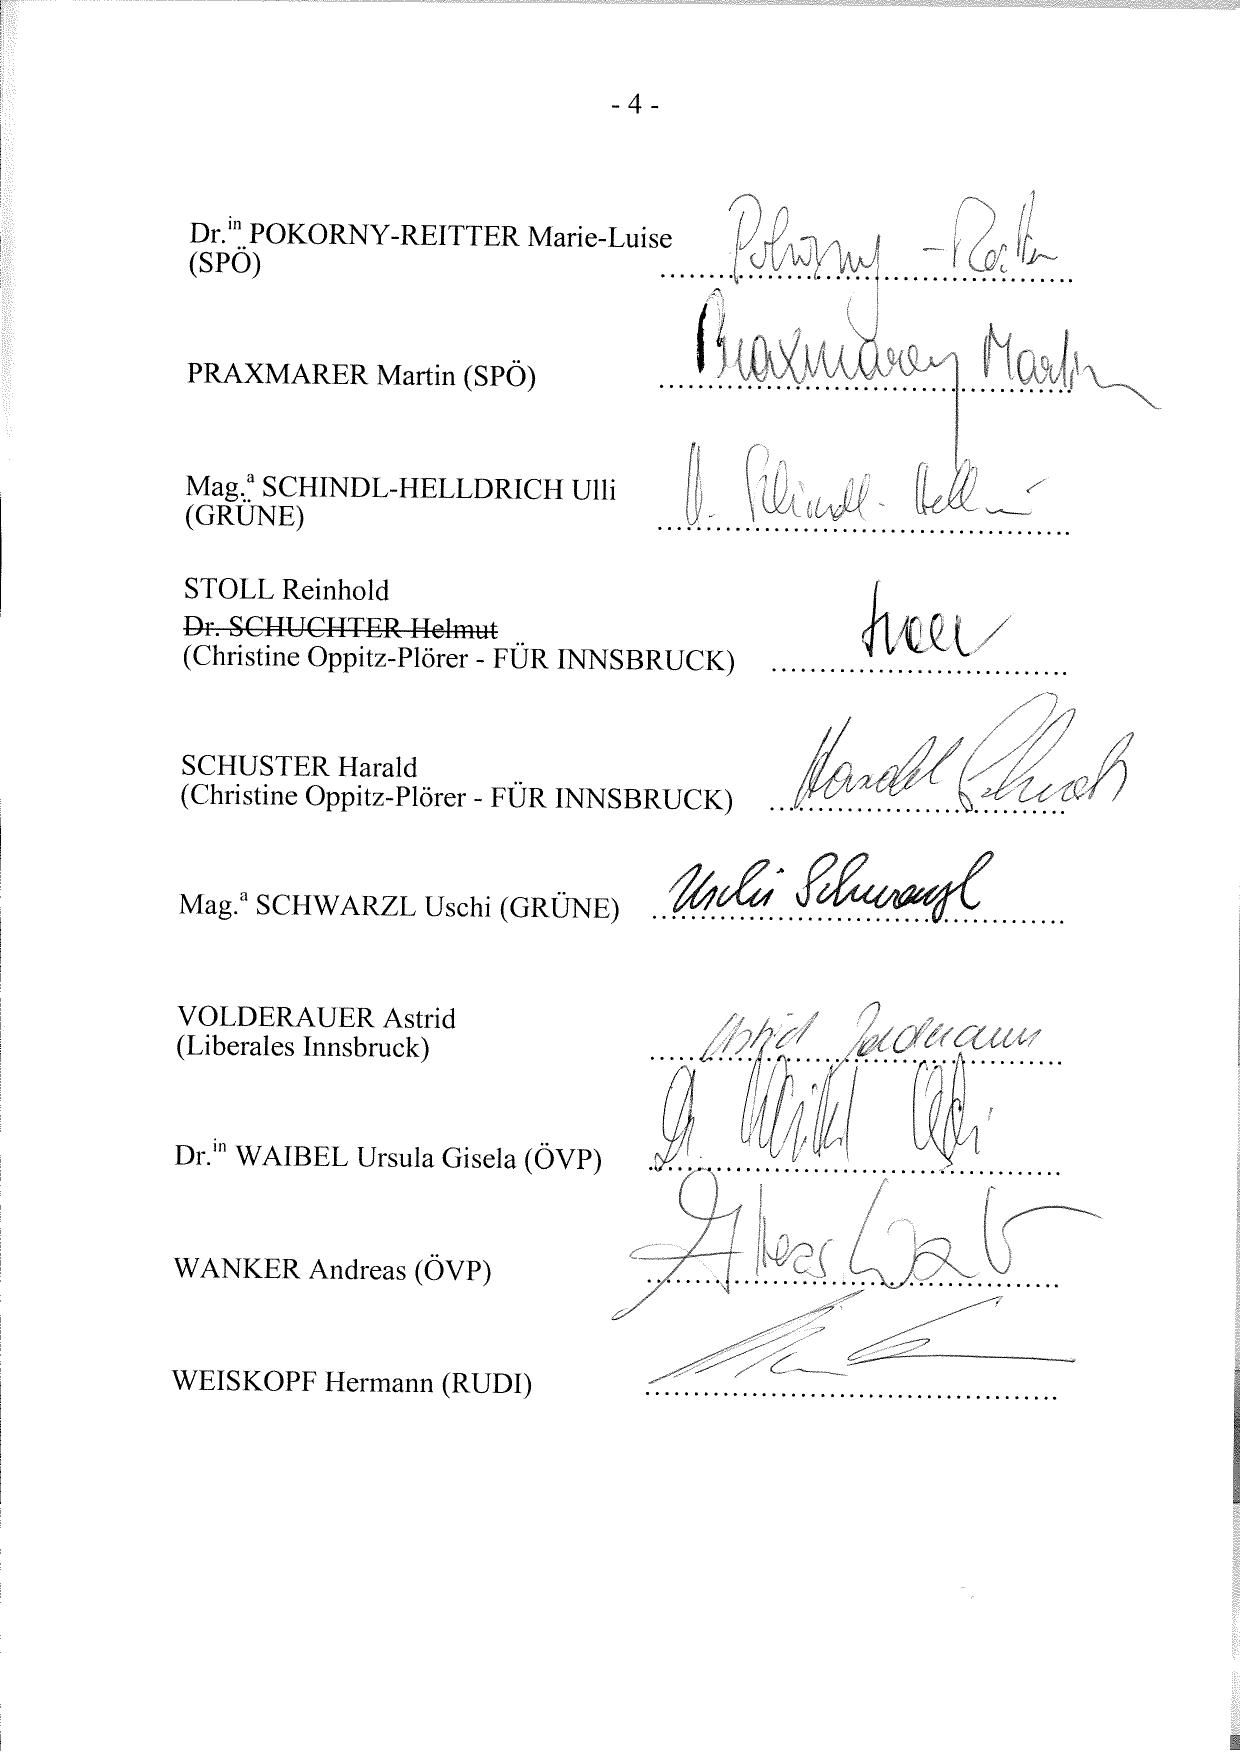 - 4 -
Dr.in POKORNY-REITTER Marie-Luise
(SPÖ)
Pokorny - Reitter
PRAXMARER Martin (SPÖ)
Praxmarer Martin
Mag.a SCHINDL-HELLDRICH Ulli
(GRÜNE)
U. Schindl-Hell
STOLL Reinhold
Dr. SCHUCHTER Helmut
(Christine Oppitz-Plörer - FÜR INNSBRUCK)
SCHUSTER Harald
(Christine Oppitz-Plörer - FÜR INNSBRUCK)
Harald Schuster
Mag.a SCHWARZL Uschi (GRÜNE)
Uschi Schwarzl
VOLDERAUER Astrid
(Liberales Innsbruck)
Astrid Volderauer
Dr.in WAIBEL Ursula Gisela (ÖVP)
Dr.
WANKER Andreas (ÖVP)
Andreas
WEISKOPF Hermann (RUDI)